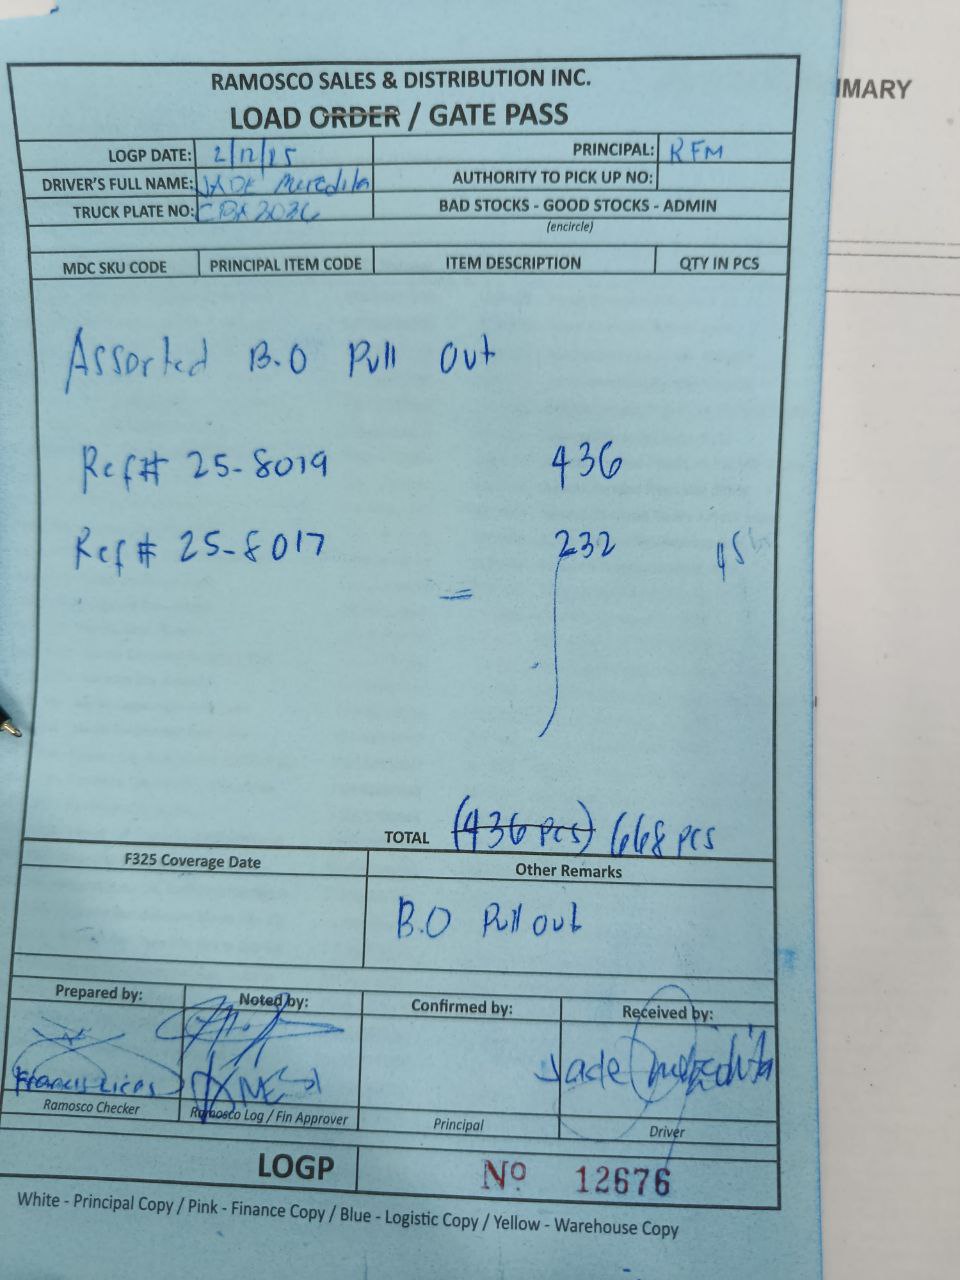 IMARY
RAMOSCO SALES & DISTRIBUTION INC.
LOAD ORDER / GATE PASS
LOGP DATE: 2/12/15 PRINCIPAL: RFM
DRIVER'S FULL NAME: JADE Meredita AUTHORITY TO PICK UP NO:
TRUCK PLATE NO: BAD STOCKS - GOOD STOCKS - ADMIN
(encircle)
MDC SKU CODE PRINCIPAL ITEM CODE ITEM DESCRIPTION QTY IN PCS
Assorted B.O Pull Out
Ref# 25-8019 436
Ref# 25-8017 232
=
TOTAL (436 pcs) 668 pcs
F325 Coverage Date Other Remarks
B.O Pull out
Prepared by: Noted by: Confirmed by: Received by:
Jade Meredita
Ramosco Checker Ramosco Log / Fin Approver Principal Driver
LOGP Nº 12676
White - Principal Copy / Pink - Finance Copy / Blue - Logistic Copy / Yellow - Warehouse Copy